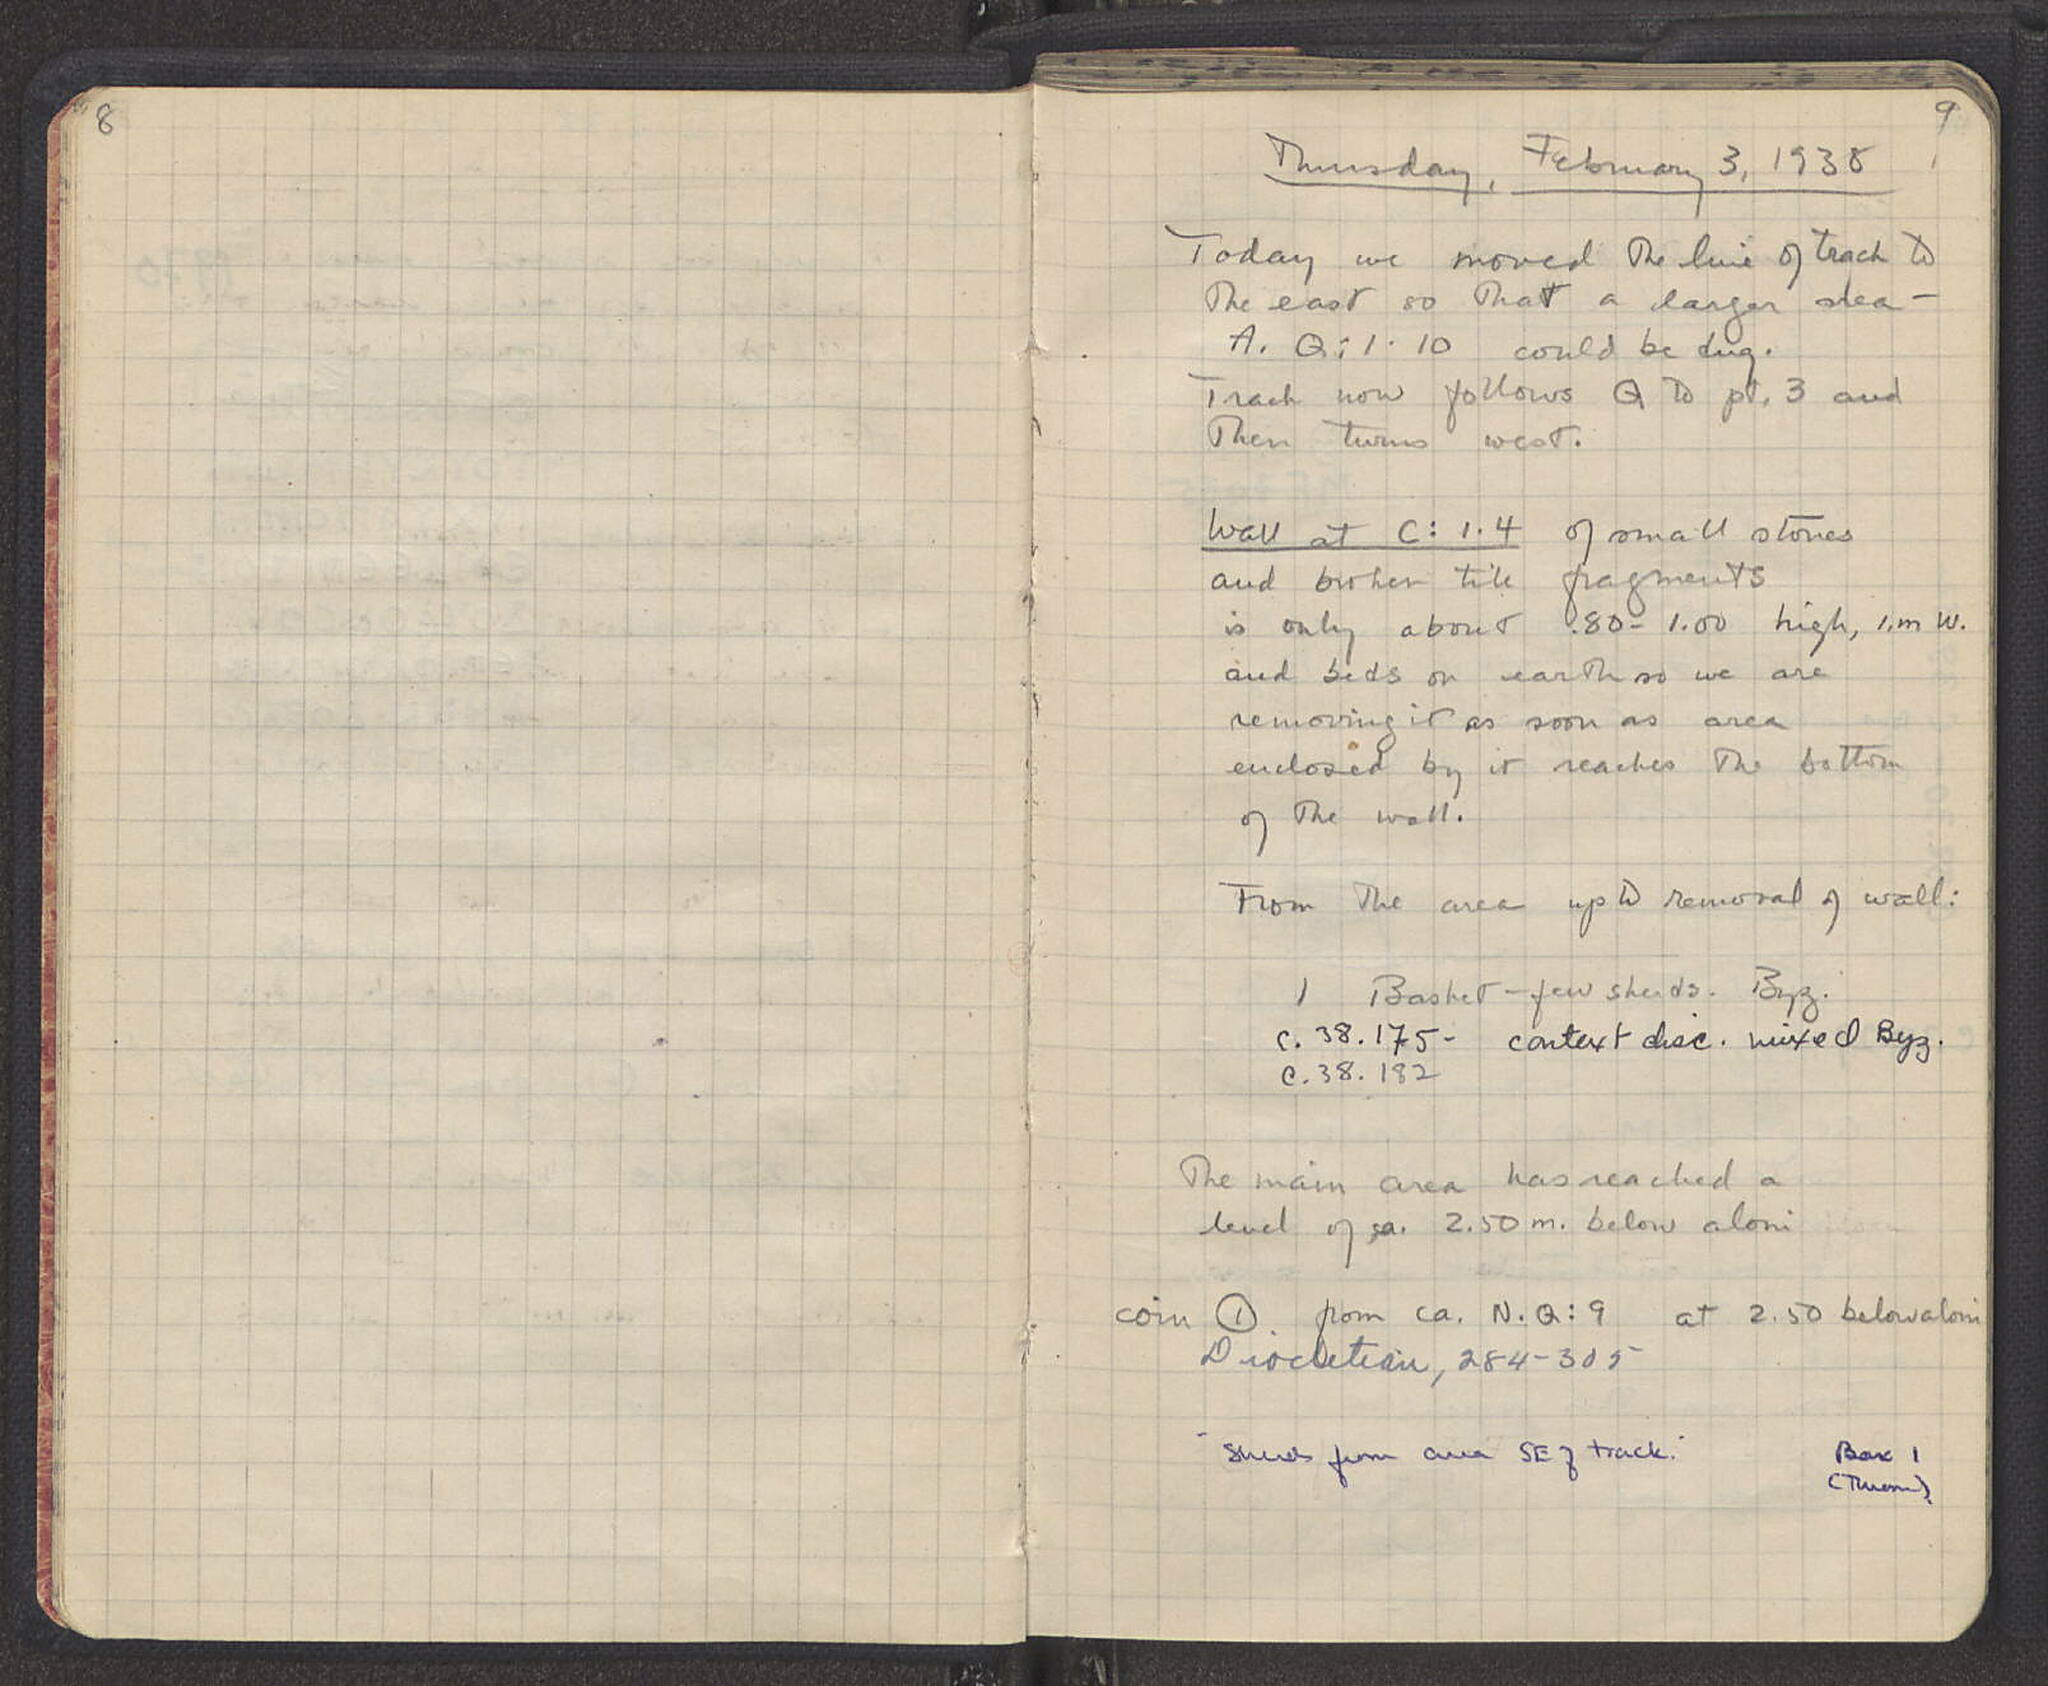 8
9
Thursday, February 3, 1938
Today we moved the line of track to
the east so that a larger area -
A. Q: 1. 10 could be dug.
Track now follows Q to pt. 3 and
then turns west.
Wall at C: 1.4 of small stones
and broken tile fragments
is only about .80 - 1.00 high, 1.m W.
and beds on earth so we are
removing it as soon as area
enclosed by it reaches the bottom
of the wall.
From the area up to removal of wall:
1 Basket - few sherds. Byz.
C. 38. 175 - context disc. mixed Byz.
C. 38. 182
The main area has reached a
level of ca. 2.50 m. below aloni
coin ①. from ca. N. Q: 9 at 2.50 below aloni
Diocletian, 284-305
"Sherds from area SE of track." Box 1